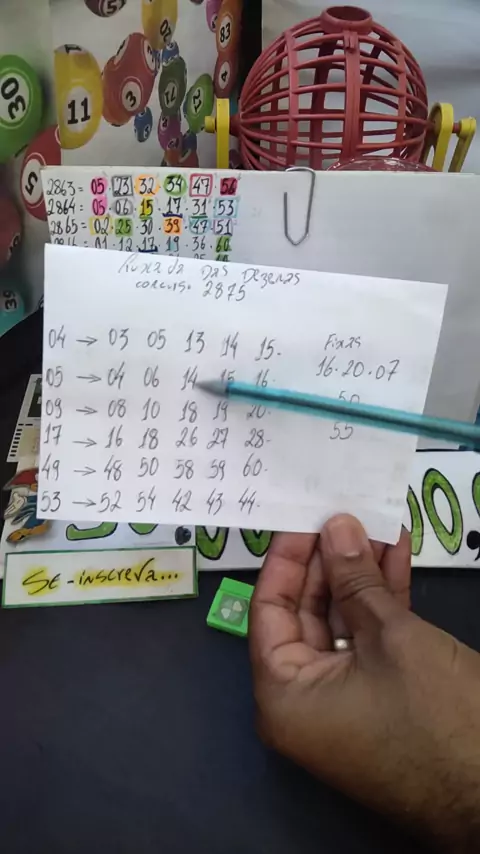 2863 = 05 23 32 34 47 56
2864 = 05 06 15 17 31 53
2865 = 02 25 30 39 47 51
01 12 17 19 36 60
Puxada das Dezenas
concurso 2875
04 → 03 05 13 14 15.
05 → 04 06 14 15 16.
09 → 08 10 18 19 20.
17 → 16 18 26 27 28.
49 → 48 50 58 59 60.
53 → 52 54 42 43 44.
Fixas
16. 20. 07
50
55
Se-inscreva...
30
11
3
83
5